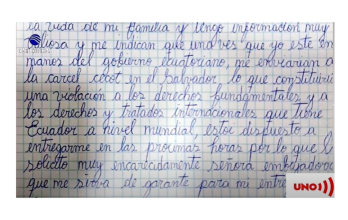 la vida de mi familia y tengo informacion muy
liosa y me indican que una ves que yo este en
manos del gobierno ecuatoriano, me enviarian a
la carcel cecot en el Salvador lo que constituiria
una violación a los derechos fundamentales y a
los derechos y tratados internacionales que tiene
Ecuador a nivel mundial, estoi dispuesto a
entregarme en las proximas horas por lo que
solicito muy encarecidamente señora embajadora
que me sirva de garante para mi entre
UNO